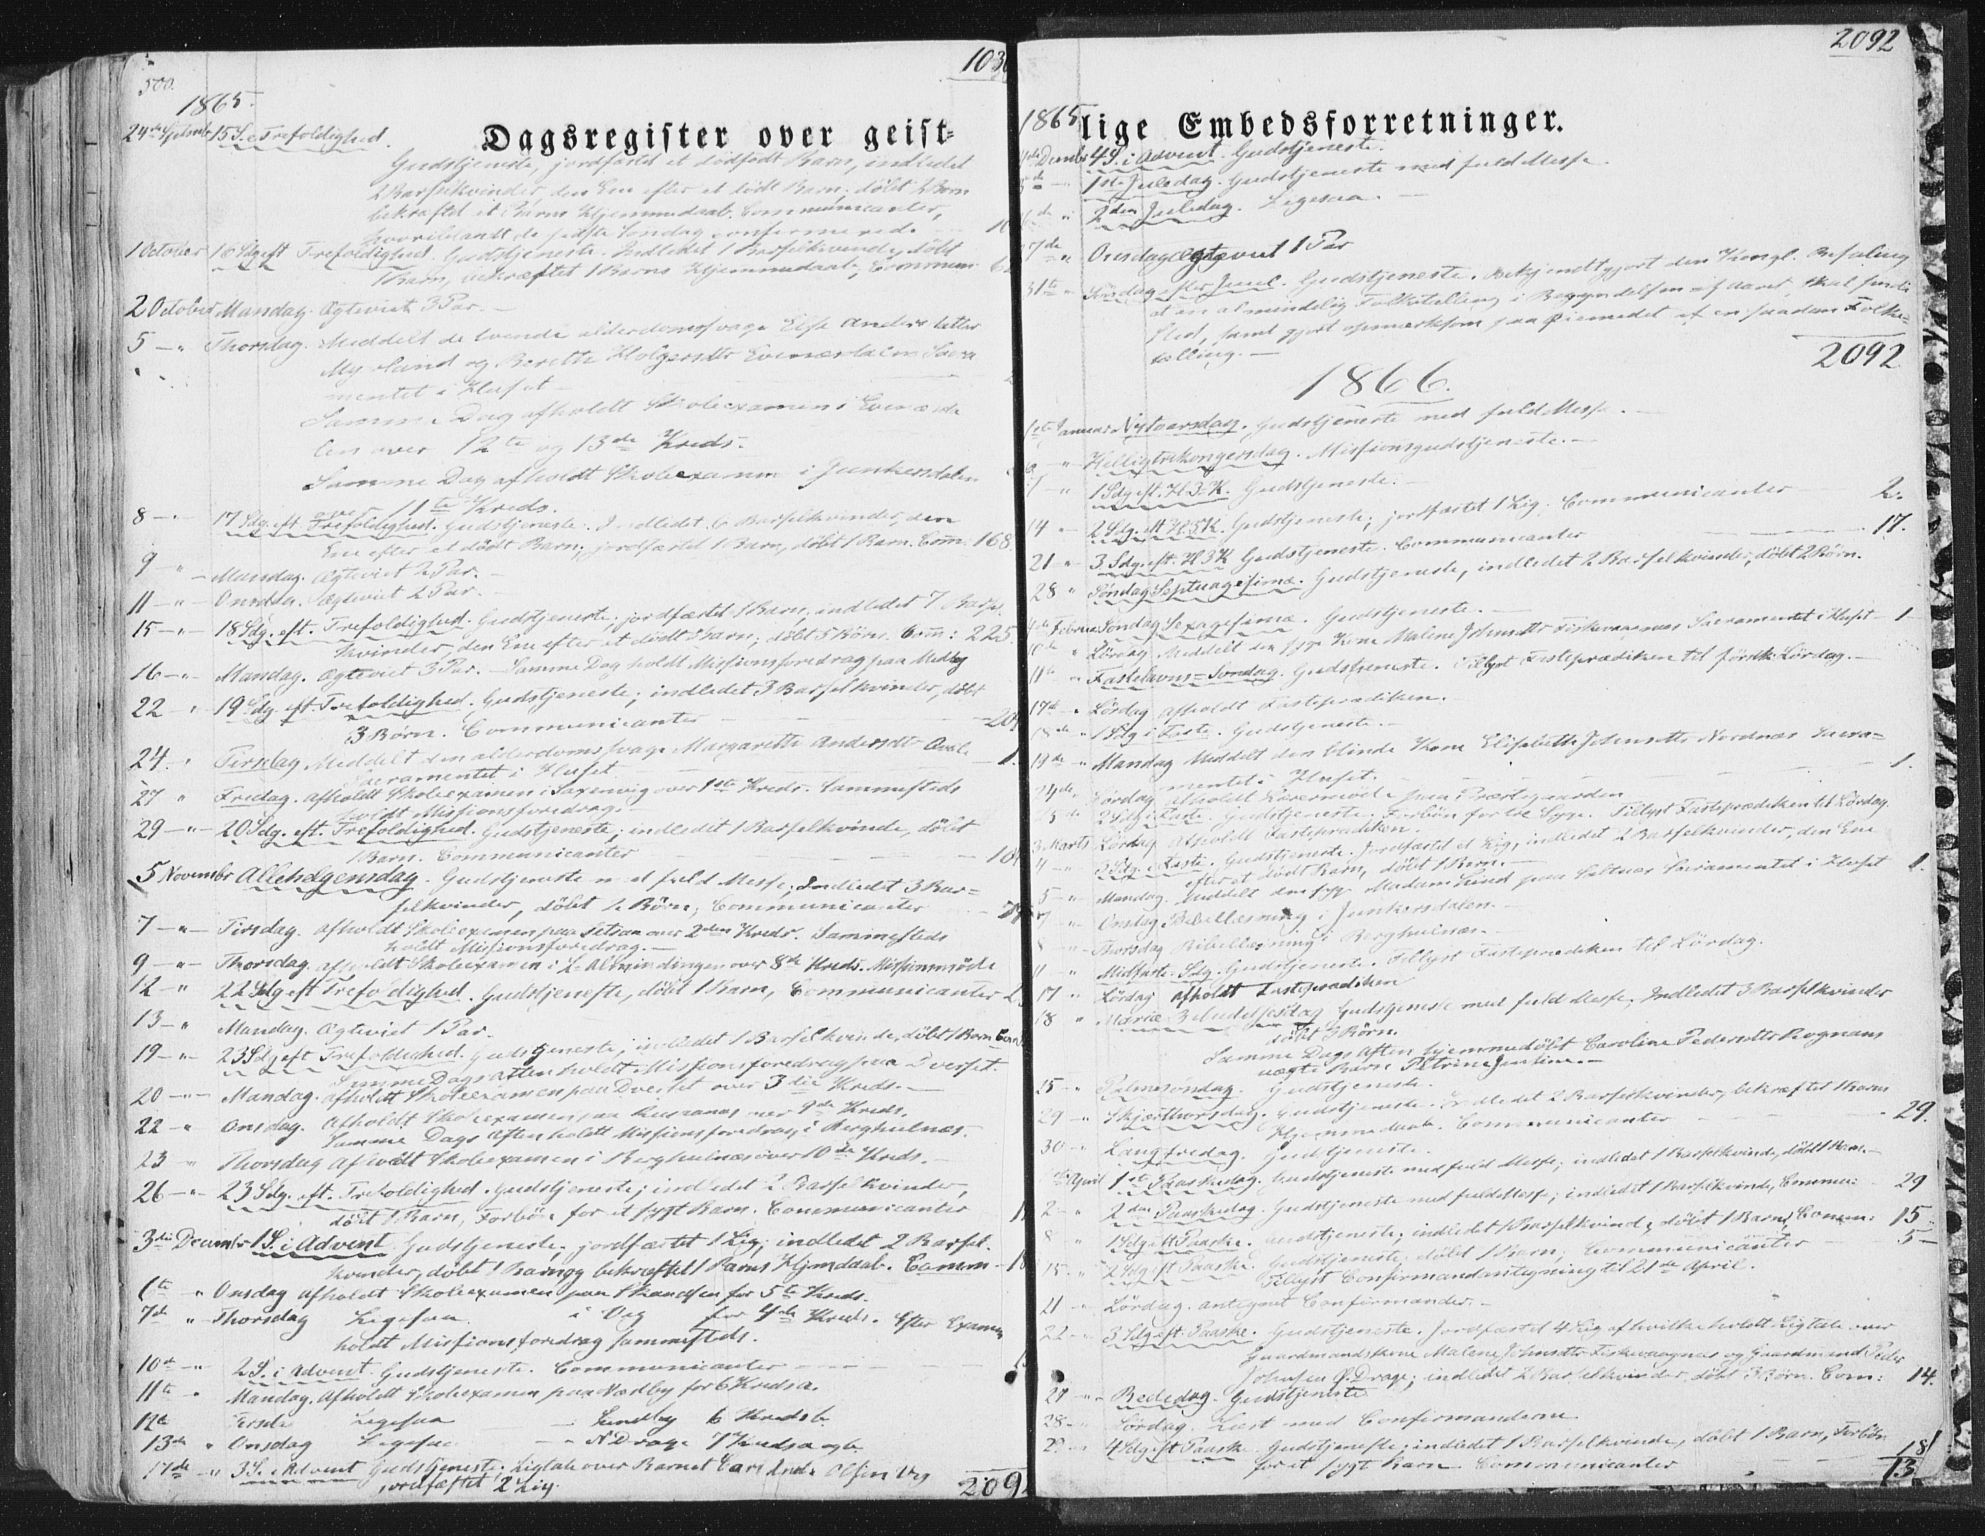 500.
103
1865.
Dagsregister over geist=
24de Septembr 15 S. e Trefoldighed.
Gudstjeneste, jordfæstet et dødfødt Barn, indledet
2 Barselkvinder, den Ene efter et dødt Barn; døbt 2 Børn
bekræftet et Barns Hjemmedaab. Communicanter,
hvoriblandt de sidste Søndag confirmerede
1 October 16 Sdg eft Trefoldighed. Gudstjeneste. Indledet 1 Barselkvinde, døbt
Barn, bekræftet 1 Barns Hjemmedaab, Commun:
2 October Mandag. Ægteviet 3 Par. —
5 — " Thorsdag. Meddelt de tvende alderdomssvage Else Andersdatter
Mysund og Berethe Holgersdtr Evenæsdalen Sacra
mentet i Huset
Samme Dag afholdt Skoleexamen i Evenæsda
len over 12te og 13de Kreds.
Samme Dag afholdt Skoleexamen i Junkersdalen
over 11te Kreds.
8 — " 17 Sdg. eft Trefoldighed. Gudstjeneste. Indledet 6 Barselkvinder, den
Ene efter et dødt Barn; jordfæstet 1 Barn, døbt 1 Barn. Com: 168
9 " — Mandag. Ægteviet 2 Par. —
11 — " — Onsdag. Ægteviet 2 Par. —
15 — " — 18 Sdg. eft. Trefoldighed. Gudstjeneste; jordfæstet 1 Barn, indledet 7 Barsel
kvinder, den Ene efter et dødt Barn; døbt 5 Børn. Com: 225
16 — " Mandag. Ægteviet 3 Par. — Samme Dag holdt Missionsforedrag paa Medby
22 — " 19 Sdg. eft. Trefoldighed. Gudstjeneste; indledet 3 Barselkvinder, døbt
3 Børn. Communicanter — — — 20
24. " Tirsdag Meddelt den alderdomssvage Margarethe Andersdtr Qvale
Sacramentet i Huset — — 1.
27 " Fredag. Afholdt Skoleexamen i Saxenvig over 1ste Kreds. Sammesteds
holdt Missionsforedrag.
29 — " — 20 Sdg. eft. Trefoldighed. Gudstjeneste; indledet 1 Barselkvinde, døbt
1 Barn. Communicanter — — — 10
5 Novembr Allehelgensdag. Gudstjeneste med fuld Messe; Indledet 3 Bar=
selkvinder, døbt 2 Børn; Communicanter
7 — " — Tirsdag. Afholdt Skoleexamen paa Setsaa over 2den Kreds. Sammesteds
holdt Missionsforedrag. —
9 — " — Thorsdag. afholdt Skoleexamen i L. Almindingen over 8de Kreds. Missionsmøde
12 — " 22 Sdg eft Trefoldighed. Gudstjeneste, døbt 1 Barn, Communicanter
13 — " Mandag. Ægteviet 1 Par.
19 — " 23 Sdg eft Trefoldighed. Gudstjeneste; indledet 1 Barselkvinde, døbt 1 Barn Com
Samme Dags Aften holdt Missionsforedrag paa Dverset.
20 — " — Mandag. afholdt Skoleexamen paa Dverset over 3die Kreds. —
22 — " Onsdag. Afholdt Skoleexamen paa over 9de Kreds.
Samme Dags Aften holdt Missionsforedrag i Berghulnes.
23 " Thorsdag afholdt Skoleexamen i Berghulnæs over 10de Kreds. —
26 — " — 23 Sdg. eft. Trefoldighed. Gudstjeneste; indledet 2 Barselkvinder,
døbt 1 Barn, Forbøn for et sygt Barn. Communicanter
3die Decembr 1 S. i Advent. Gudstjeneste. jordfæstet 1 Lig; indledet 2 Barsel.
kvinder, døbt 1 Barn og bekræftet 1 Barns Hjmdaab. Comm —
6te " Onsdag afholdt Skoleexamen paa Skandsen for 5te Kreds.
7de " Thorsdag Ligesaa i Veg for 4de Kreds. Efter Examen
holdt Missionsforedrag sammesteds.
10de — " 2 S. i Advent. Gudstjeneste. Communicanter — — —
11te " Mandag. Afholdt Skoleexamen paa Nedby for 6 Kreds a.
12te Tirsdag Ligesaa — Sundby 6 Kreds b.
13de " Onsdag Ligesaa — " N Drage 7 Kreds a og b.
17de " 3 S. i Advent. Gudstjeneste; Ligtale over Barnet Carl And. Olsen Veg
jordfæstet 2 Lig.
209
2092
1865
lige Embedsforretninger.
Decembr 4 S. i Advent. Gudstjeneste.
1ste Juledag. Gudstjeneste med fuld Messe.
2den Juledag. Ligesaa. —
7de " Onsdag Ægteviet 1 Par
31te " Søndag efter Juul. Gudstjeneste. Bekjendtgjort den Kongl. Befaling
at en almindelig Folketælling i Begyndelsen af Aaret skal finde
Sted, samt gjort opmærksom paa Øiemedet af en saadan Folke=
tælling. —
2092
1866.
1ste Januar Nytaarsdag. Gudstjeneste med fuld Messe. —
6 " Helligtrekongersdag. Missionsgudstjeneste. —
7 " 1 Sdg eft. H 3 K. Gudstjeneste. —
14 " 2 Sdg. eft H 3 K. Gudstjeneste; jordfæstet 1 Lig. Communicanter 2.
21 " 3 Sdg. eft. H 3 K Gudstjeneste. Communicanter — 17.
28 " Søndag Septuagesima. Gudstjeneste, indledet 2 Barselkvinder, døbt 2 Børn.
4de Februar Søndag Sexagesima. Gudstjeneste. —
10de " Lørdag Meddelt den syge Kone Malene Johnsdtr Fiskevaagnæs Sacramentet i Huset 1
11te " Fastelavns=Søndag. Gudstjeneste. Tillyst Fasteprædiken til førstk. Lørdag. —
17de " Lørdag afholdt Fasteprædiken.
18de " 1 Sdg i Faste. Gudstjeneste. —
19de " Mandag Meddelt den blinde Kone Elisabeth Johnsdtr Nordnæs Sacra=
mentet i Huset. — — — 1.
24de Lørdag afholdt Lærermøde paa Præstegaarden
2 Sdg i Faste. Gudstjeneste. Forbøn for tre Syge. Tillyst Fasteprædiken til Lørdag.
3 Marts Lørdag Afholdt Fasteprædiken.
4 " 3 Sdg. i Faste. Gudstjeneste. Jordfæstet et Lig, indledet 2 Barselkvinder, den Ene
efter et dødt Barn, døbt 1 Barn. —
5 — " Mandag. Meddelt den syge Madam Lund paa Saltnæs Sacramentet i Huset 1.
7 " Onsdag Bibellæsning i Junkersdalen. —
8 — " Thorsdag Bibellæsning i Berghulnæs. —
11 — " Midfaste=Sdg. Gudstjeneste. Tillyst Fasteprædiken til Lørdag.
17 " Lørdag afholdt Fasteprædiken
18 " Mariæ Bebudelsesdag Gudstjeneste med fuld Messe. Indledet 3 Barselkvinder
døbt 3 Børn.
Samme Dags Aften hjemmedøbt Caroline Pedersdtr Rognans
uægte Barn Petrine Justine. —
25 — " Palmesøndag. Gudstjeneste.
29 " Skjærthorsdag. Gudstjeneste. Indledet 2 Barselkvinder, bekræftet 1 Barns
Hjemmedaab. Communicanter — — 29.
30 — " Langfredag. Gudstjeneste.
April 1ste Paaskedag. Gudstjeneste med fuld Messe; indledet 1 Barselkvinde, døbt 1 Barn. —
2 — " 2den Paaskedag. Gudstjeneste med fuld Messe; indledet 1 Barselkvinde, Commu: 29
8 " 1 Sdg eft Paaske. Gudstjeneste, indledet 1 Barselkvinde, døbt 1 Barn, Comm: 15
15 — " 2 Sdg eft Paaske Gudstjeneste; døbt 1 Barn; Communicanter — 5 —
Tillyst Confirmandantegning til 21de April.
21 " Lørdag. antegnet Confirmander. —
22 — " 3 Sdg eft Paaske. Gudstjeneste. Jordfæstet 4 Lig af hvilke holdt Ligtale over
Gaardmandskone Malene Johnsdtr Fiskevaagnæs og Gaardmand Peder
Johnsen Ø. Drage; indledet 2 Barselkvinder, døbt 3 Børn. Com: 14.
27 — " Bededag. Gudstjeneste
28 — " Lørdag. Læst med Confirmanderne
29 — " 4 Sdg eft Paaske. Gudstjeneste; indledet 1 Barselkvinde, døbt 1 Barn, Forbøn
for et sygt Barn Communicanter — — 18
13